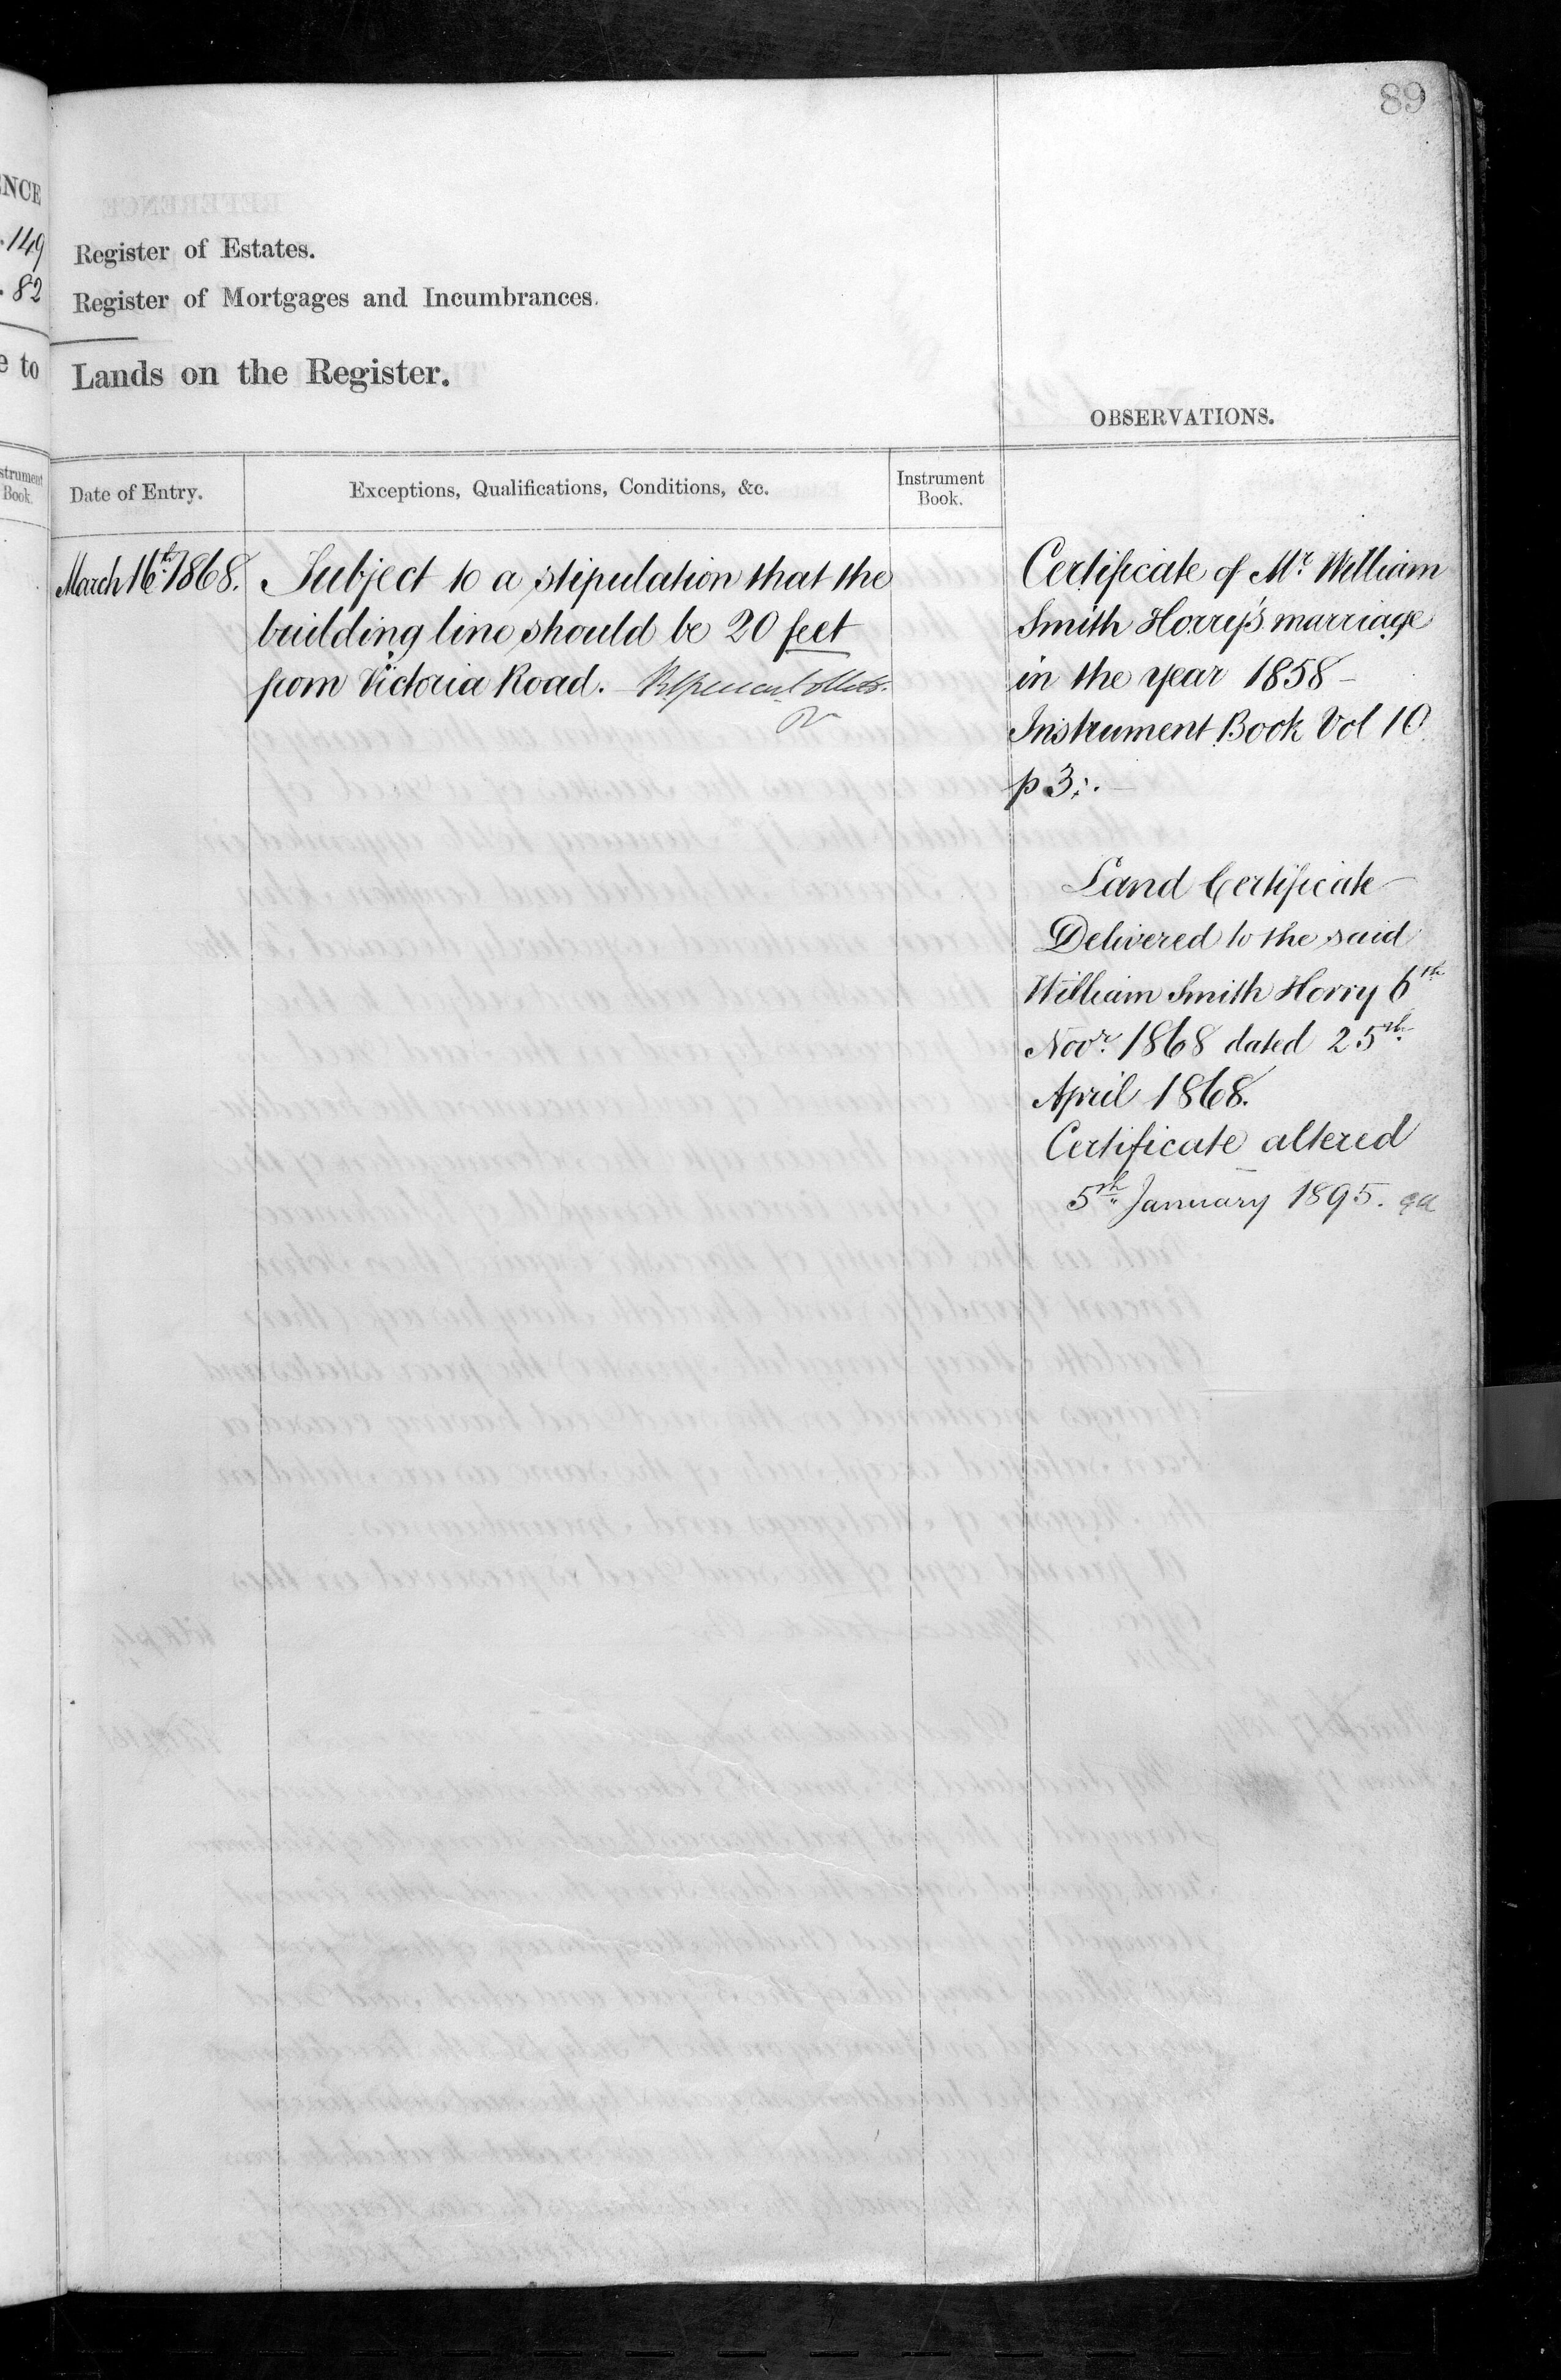 89
ENCE
149
82
Register of Estates.
Register of Mortgages and Incumbrances.
e to
Lands on the Register.
OBSERVATIONS.
strument
Book.
Date of Entry.
Exceptions, Qualifications, Conditions, &c.
Instrument
Book.
March 16th 1868.
Subject to a stipulation that the
building line should be 20 feet
from Victoria Road.
Certificate of Mr William
Smith Horry's marriage
in the year 1858 –
Instrument Book Vol 10
p 3
Land Certificate
Delivered to the said
William Smith Horry 6th
Novr. 1868 dated 25th
April 1868.
Certificate altered
5th January 1895.